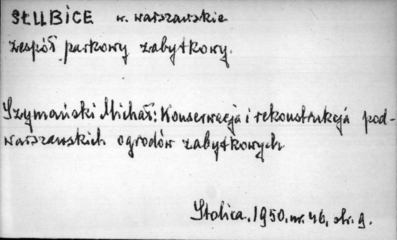 SŁUBICE w. warszawskie
zespół parkowy zabytkowy.
Szymański Michał: Konserwacja i rekonstrukcja pod-
warszawskich ogrodów zabytkowych
Stolica, 1950, nr. 46, str. 9.